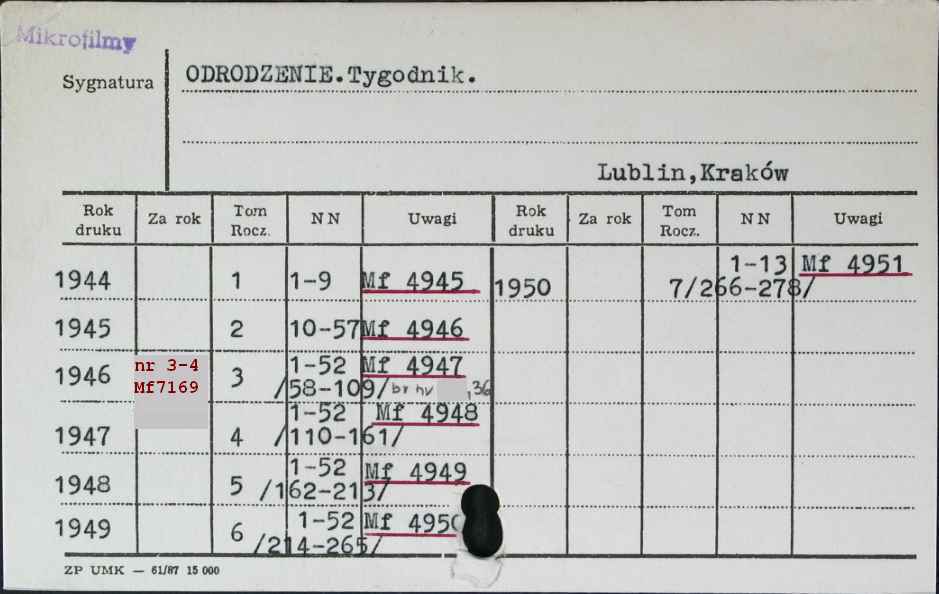 Mikrofilmy
Sygnatura
ODRODZENIE.Tygodnik.
Lublin,Kraków
Rok druku Za rok Tom Rocz. NN Uwagi Rok druku Za rok Tom Rocz. NN Uwagi
1944 1 1-9 Mf 4945 1950 7/266-278/ 1-13 Mf 4951
1945 2 10-57 Mf 4946
1946 nr 3-4 Mf7169 3 1-52 /58-109/ Mf 4947 br nv ,36
1947 4 1-52 /110-161/ Mf 4948
1948 5 1-52 /162-213/ Mf 4949
1949 6 1-52 /214-265/ Mf 4950
ZP UMK — 61/87 15 000